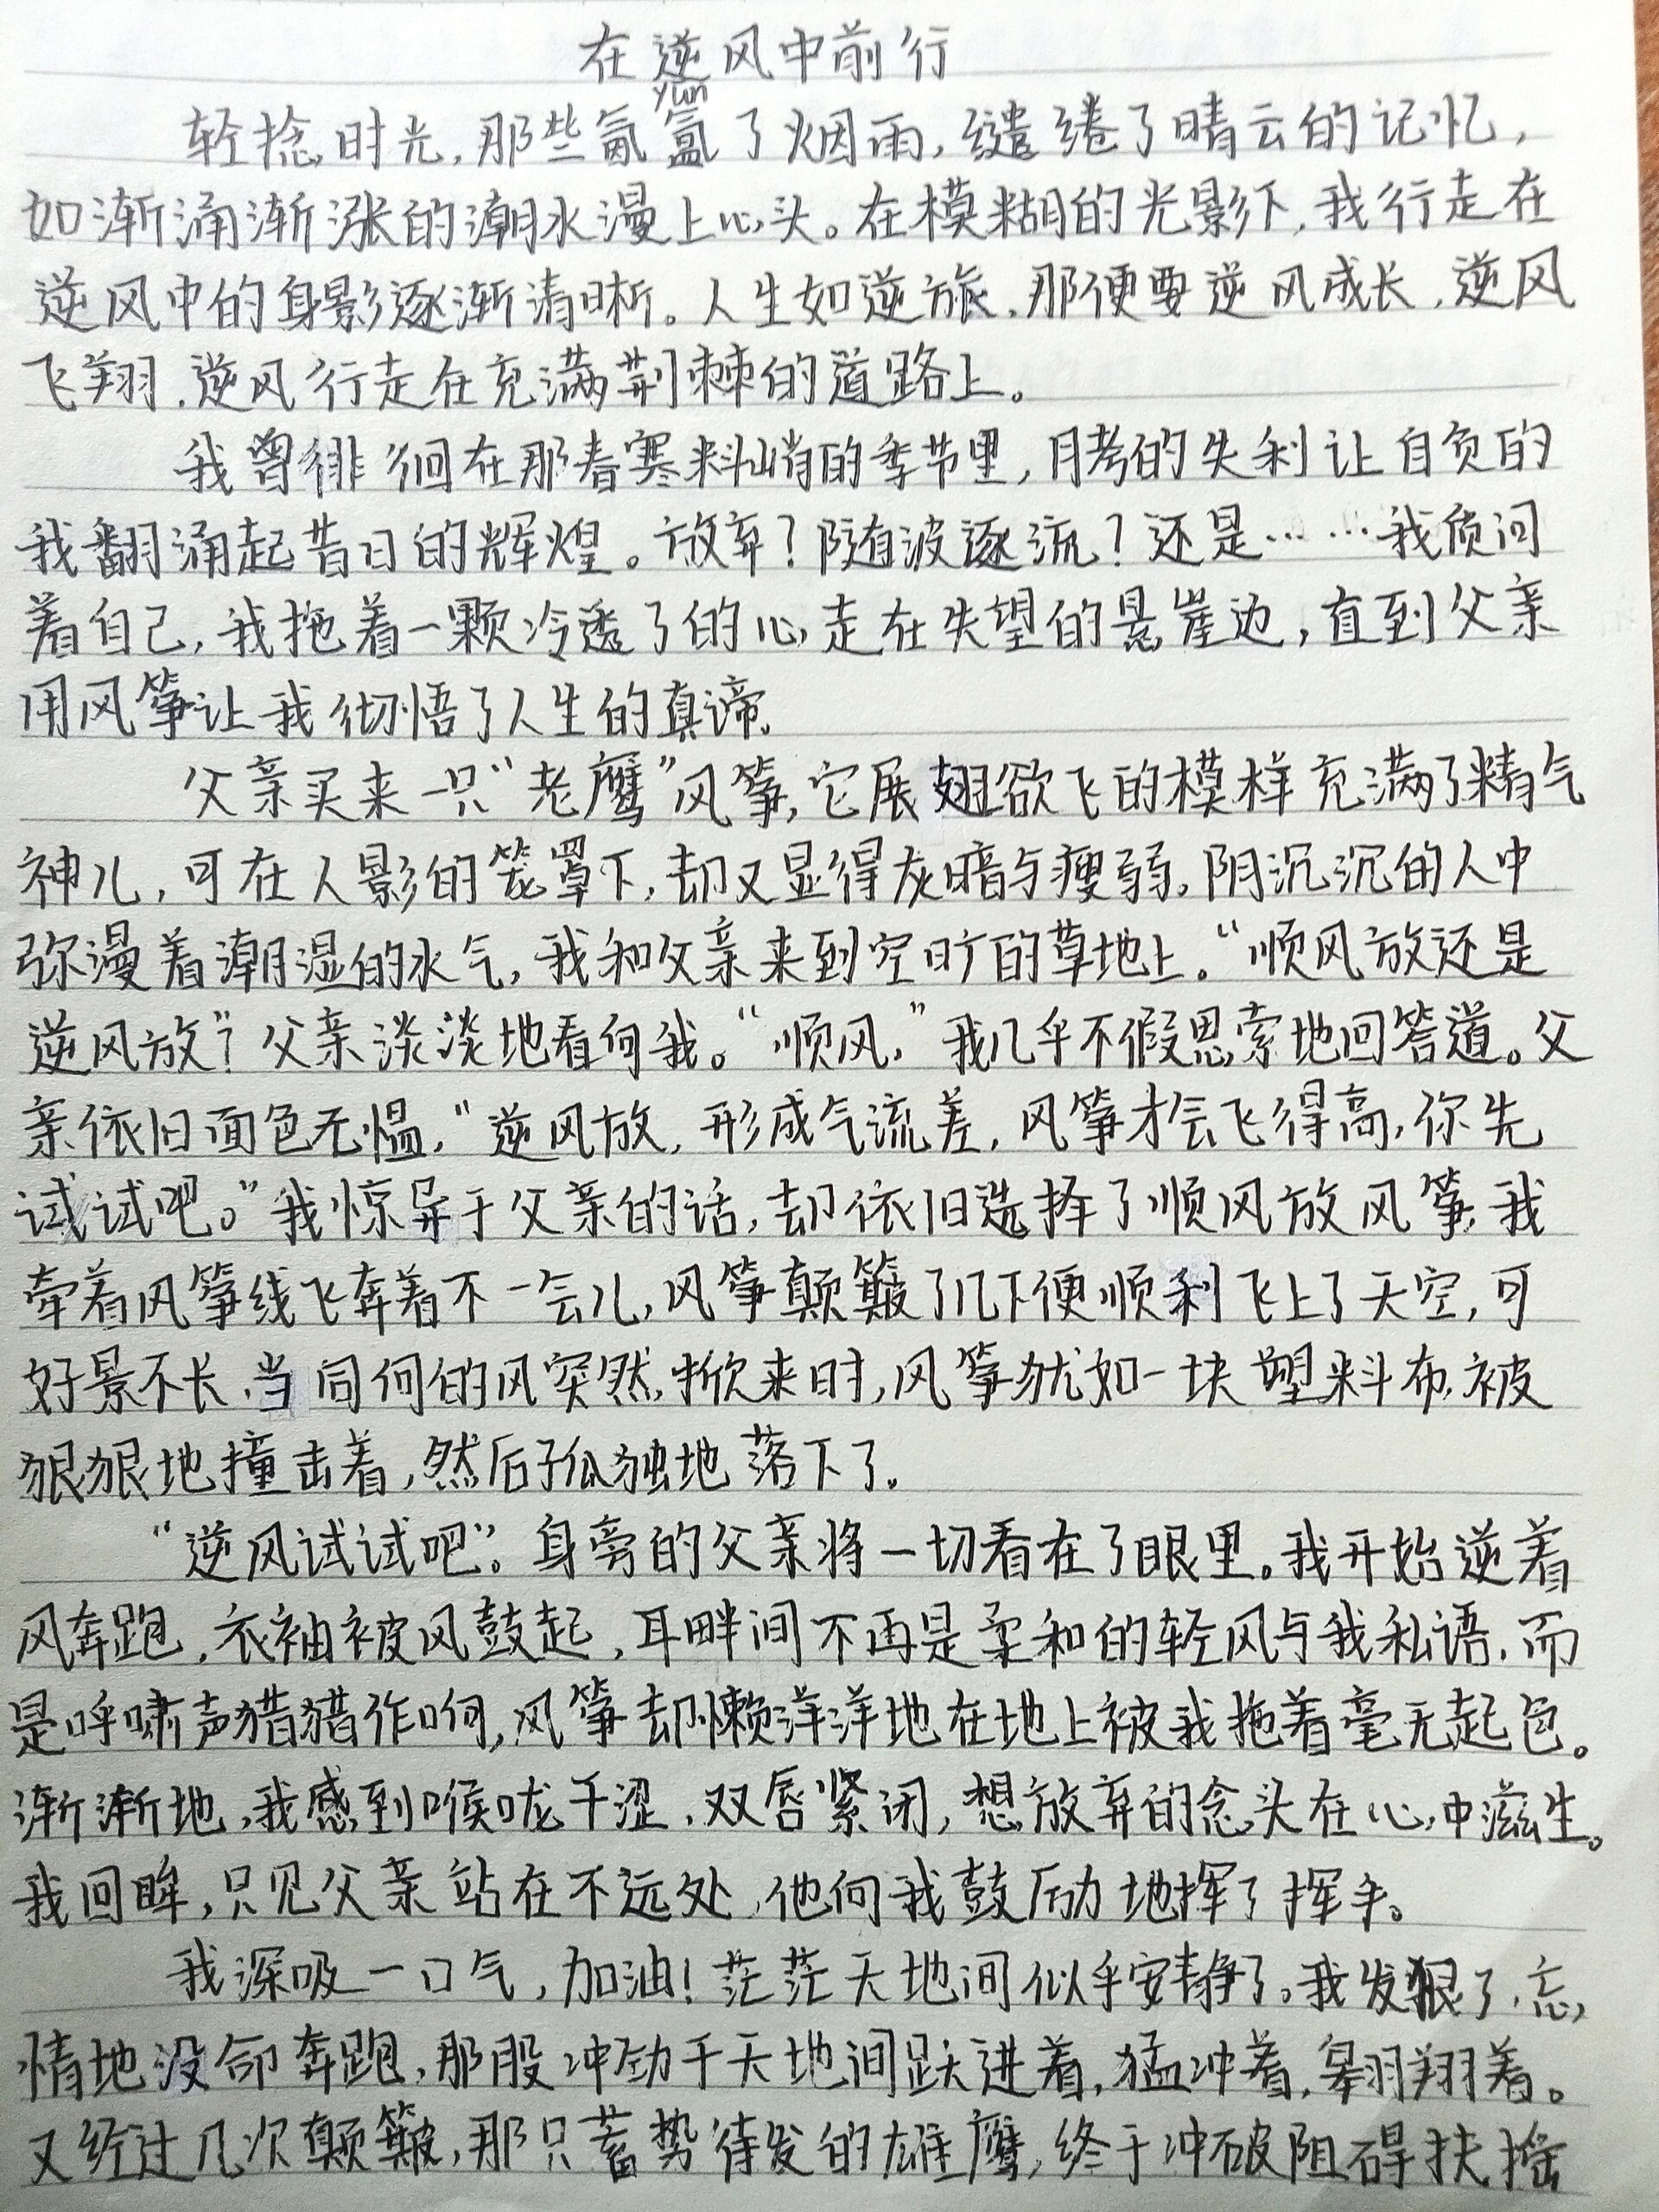 在逆风中前行
yūn
轻捻时光,那些氤氲了烟雨,缱绻了晴云的记忆,
如渐涌渐涨的潮水漫上心头。在模糊的光影下,我行走在
逆风中的身影逐渐清晰。人生如逆旅,那便要逆风成长,逆风
飞翔,逆风行走在充满荆棘的道路上。
我曾徘徊在那春寒料峭的季节里,月考的失利让自负的
我翻涌起昔日的辉煌。放弃?随波逐流?还是……我质问
着自己,我拖着一颗冷透了的心走在失望的悬崖边,直到父亲
用风筝让我彻悟了人生的真谛。
父亲买来一只“老鹰”风筝,它展翅欲飞的模样充满了精气
神儿,可在人影的笼罩下,却又显得灰暗与瘦弱。阴沉沉的人中
弥漫着潮湿的水气,我和父亲来到空旷的草地上。“顺风放还是
逆风放”?父亲淡淡地看向我。“顺风,”我几乎不假思索地回答道。父
亲依旧面色无愠,“逆风放,形成气流差,风筝才会飞得高,你先
试试吧。”我惊异于父亲的话,却依旧选择了顺风放风筝,我
牵着风筝线飞奔着不一会儿,风筝颠簸了几下便顺利飞上了天空,可
好景不长,当同向的风突然掀来时,风筝犹如一块塑料布,被
狠狠地撞击着,然后孤独地落下了。
“逆风试试吧”。身旁的父亲将一切看在了眼里。我开始逆着
风奔跑,衣袖被风鼓起,耳畔间不再是柔和的轻风与我私语,而
是呼啸声猎猎作响,风筝却懒洋洋地在地上被我拖着毫无起色。
渐渐地,我感到喉咙干涩,双唇紧闭,想放弃的念头在心中滋生。
我回眸,只见父亲站在不远处,他向我鼓励地挥了挥手。
我深吸一口气,加油!茫茫天地间似乎安静了。我发狠了,忘
情地没命奔跑,那股冲劲于天地间跃进着,猛冲着,翱翔着。
又经过几次颠簸,那只蓄势待发的雄鹰,终于冲破阻碍扶摇